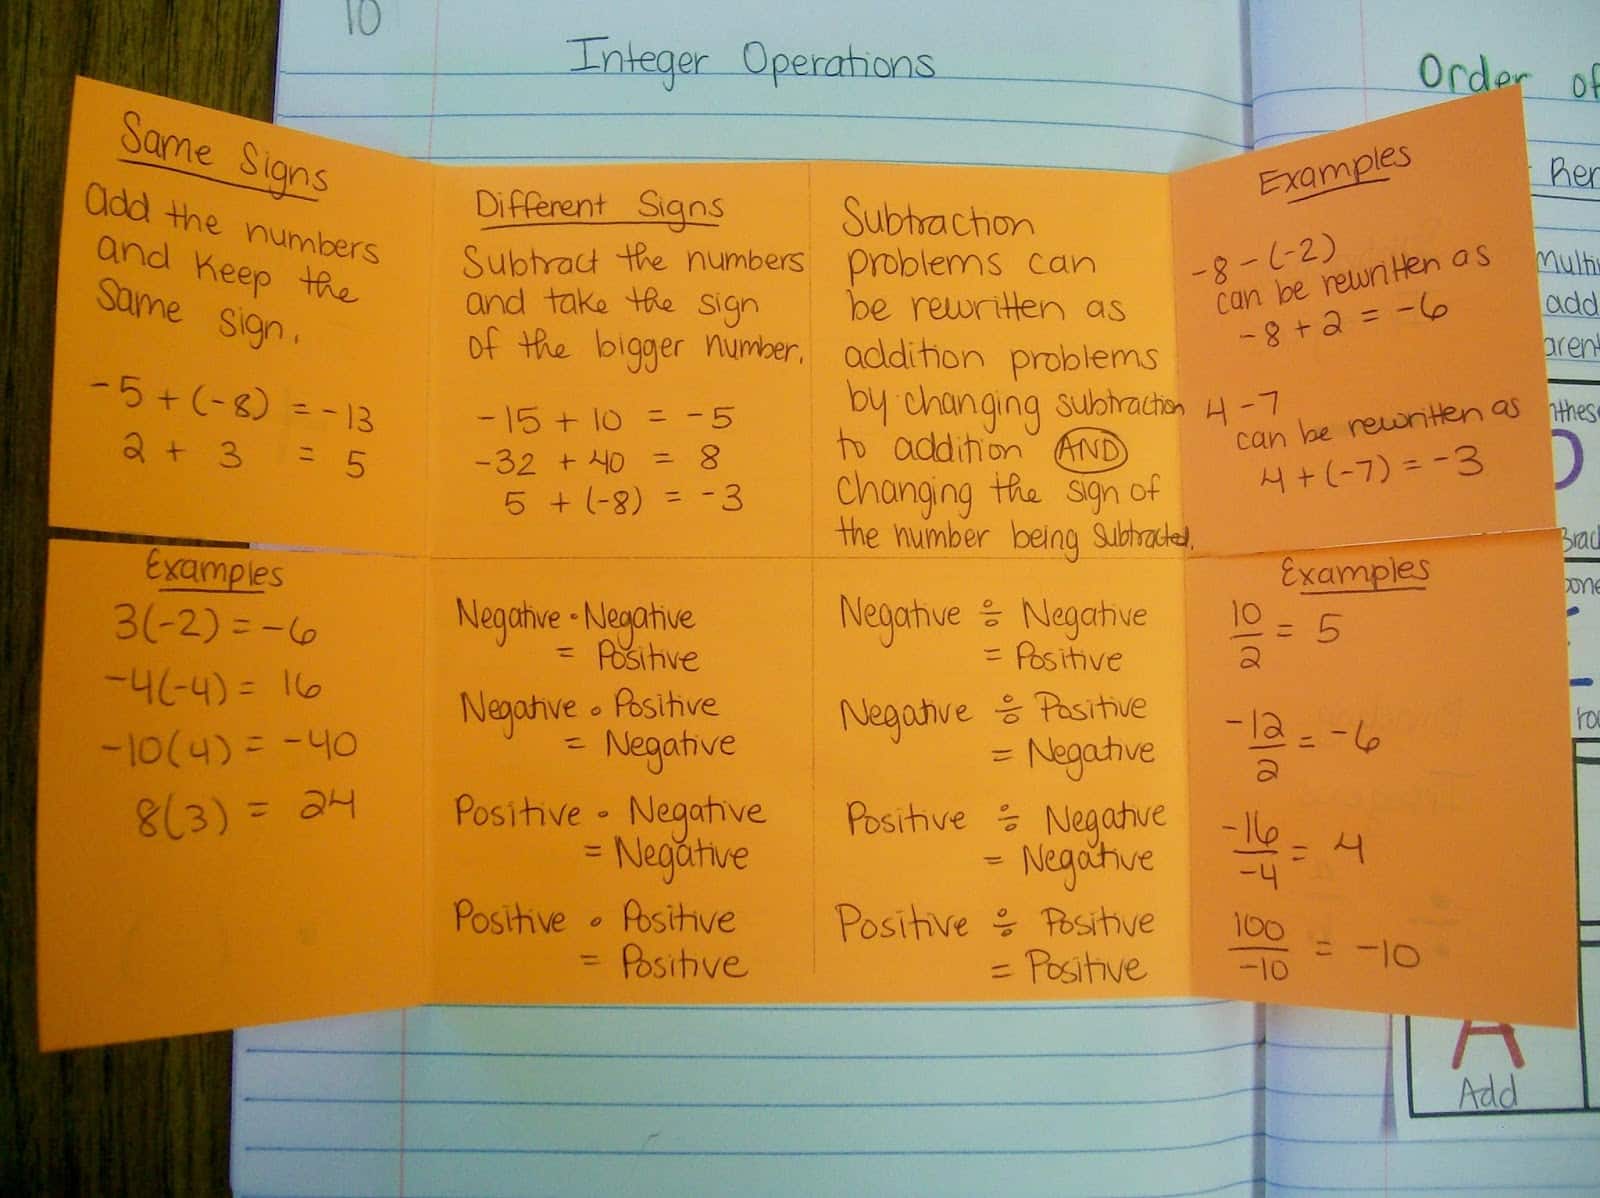 10
Integer Operations
Same Signs
Add the numbers
and keep the
same sign.
-5 + (-8) = -13
2 + 3 = 5
Different Signs
Subtract the numbers
and take the sign
of the bigger number.
-15 + 10 = -5
-32 + 40 = 8
5 + (-8) = -3
Subtraction
problems can
be rewritten as
addition problems
by changing subtraction
to addition AND
changing the sign of
the number being subtracted.
Examples
-8 - (-2)
can be rewritten as
-8 + 2 = -6
4 - 7
can be rewritten as
4 + (-7) = -3
Examples
3(-2) = -6
-4(-4) = 16
-10(4) = -40
8(3) = 24
Negative • Negative
= Positive
Negative • Positive
= Negative
Positive • Negative
= Negative
Positive • Positive
= Positive
Negative ÷ Negative
= Positive
Negative ÷ Positive
= Negative
Positive ÷ Negative
= Negative
Positive ÷ Positive
= Positive
Examples
10/2 = 5
-12/2 = -6
-16/-4 = 4
100/-10 = -10
Order of
add
A
Add